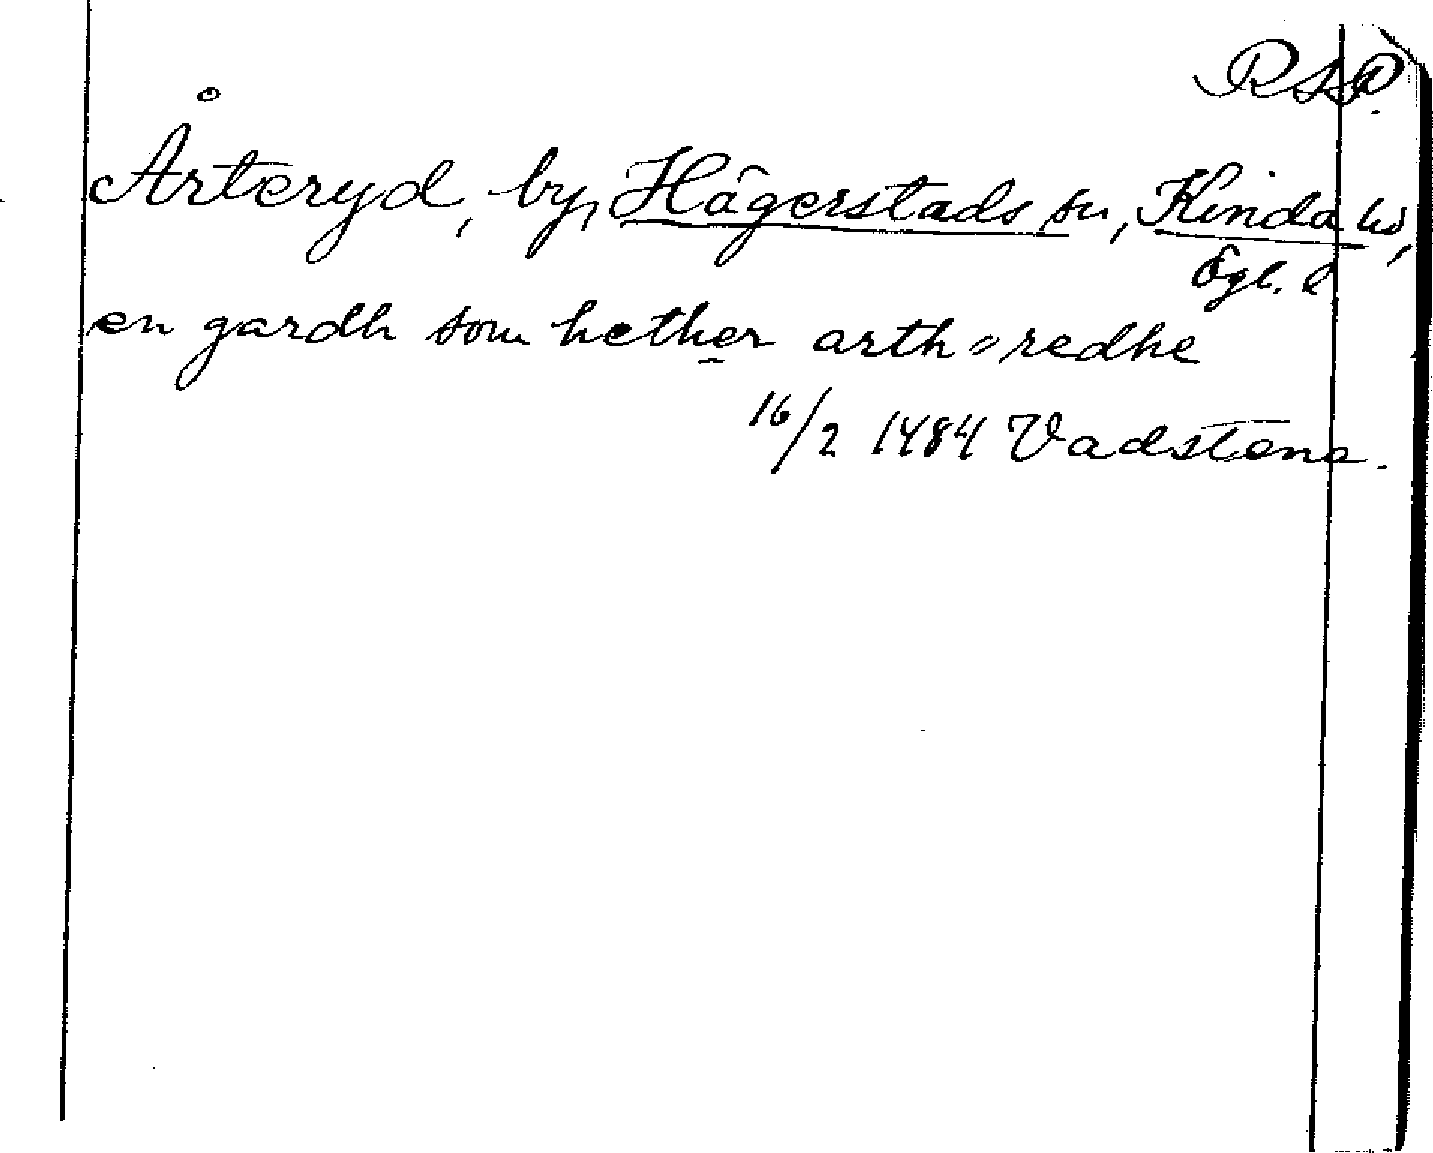 RAP.
Årteryd, by, Hägerstads sn, Kinda hd,
Ögl. l
en gardh som hether arth=redhe
16/2 1484 Vadstena.